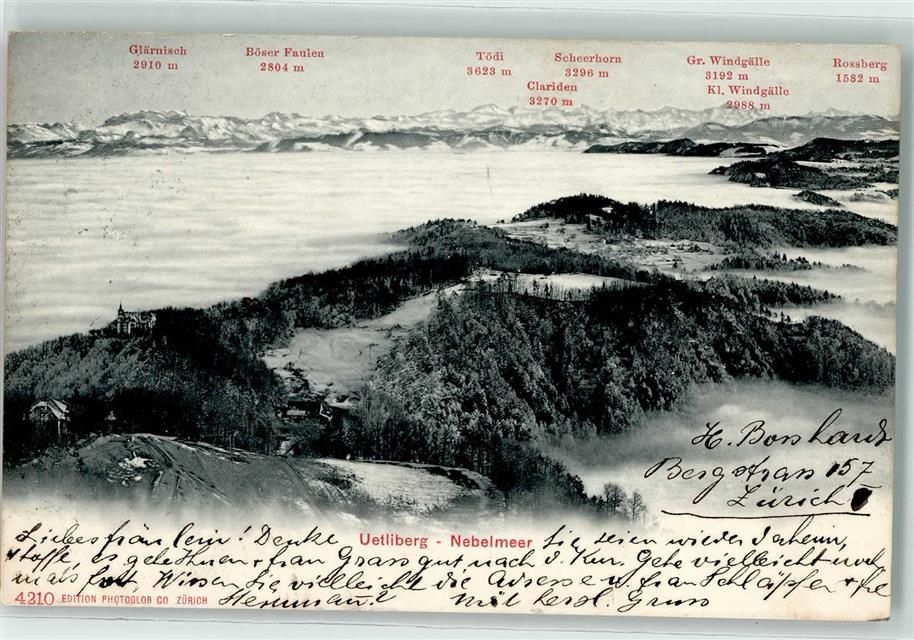 Glärnisch
2910 m
Böser Faulen
2804 m
Tödi
3623 m
Scheerhorn
3296 m
Clariden
3270 m
Gr. Windgälle
3192 m
Kl. Windgälle
2988 m
Rossberg
1582 m
H. Bosshardt
Bergstrass 157
Zürich
Uetliberg - Nebelmeer
Liebes fräulein! Denke Sie seien wieder daheim,
hoffe, es gehe Ihnen + frau Grass gut nach d. Kur. Gehe vielleicht noch
mals fort, Wissen Sie vielleicht die Adressen v. frau Schläpfer + frl
4210 EDITION PHOTOGLOB CO ZÜRICH
mit herzl. Gruss